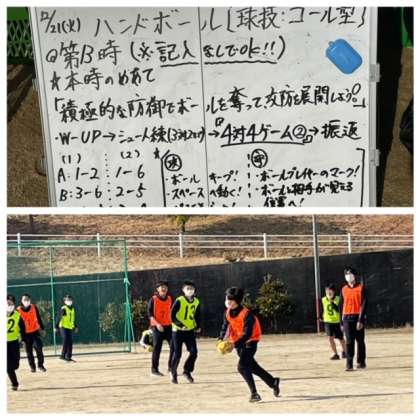 12/21(火) ハンドボール[球技:ゴール型]
@第13時(※記入なしでOK!!)
★本時のめあて
「積極的な防御でボールを奪って攻防を展開しよう!」
W-UP→シュート練(3対2or)→『4対4ゲーム②』→振返
(1) (2)
A:1-2 1-6
B:3-6 2-5
攻
ボールキープ!
スペースへ動く!
守
・ボールプレイヤーのマーク!
・ボールと相手が見える
位置へ!
2
13